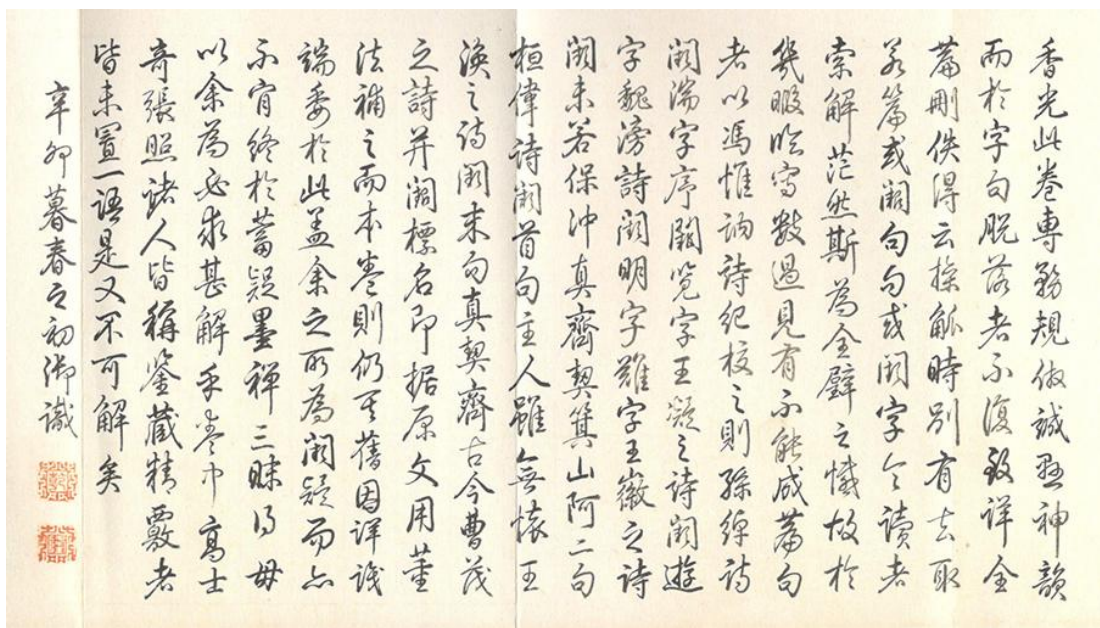 香光此卷專務規倣誠惡神韻
而於字句脫落者不復致詳全
篇刪佚得云操觚時別有去取
若篇或闕句句或闕字令讀者
索解茫然斯為全璧之憾故於
幾暇臨寫數過見有不能成篇句
者以馮惟訥詩紀校之則孫綽詩
闕湍字序闕覽字王凝之詩闕遊
字魏滂詩闕明字難字王徽之詩
闕未若保沖真齊契箕山阿二句
桓偉詩闕首句主人雖無懷王
渙之詩闕末句真契齊古今曹茂
之詩并闕標名即據原文用董
法補之而本卷則仍其舊因詳識
端委於此蓋余之所為闕疑而亦
不肯終於蓄疑墨禪三昧得毋
以余為必求甚解乎卷中高士
奇張照諸人皆稱鑒藏精覈者
皆未置一語是又不可解矣
辛卯暮春之初御識